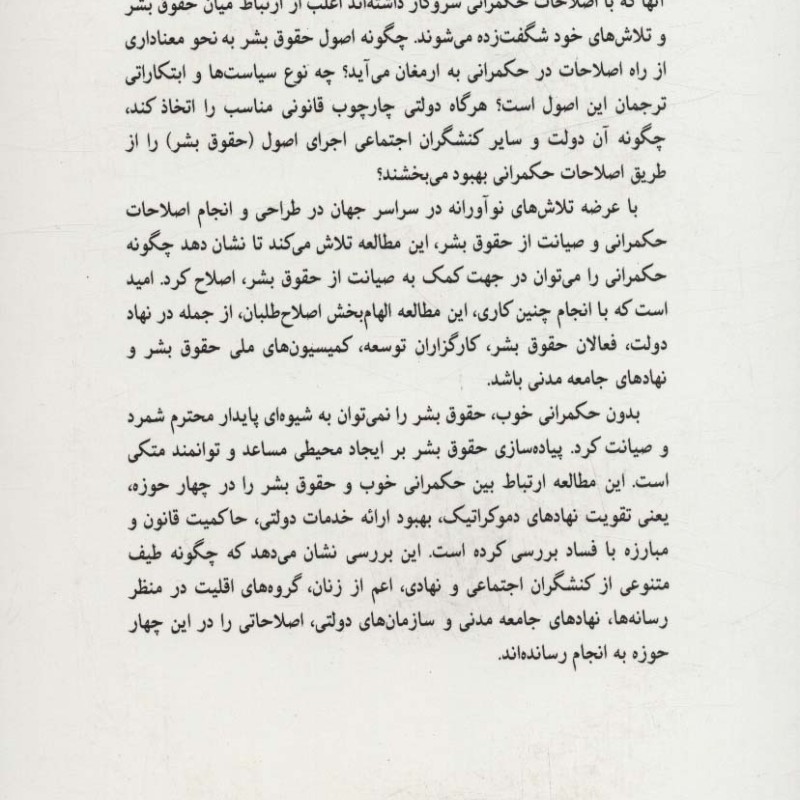 آنها که با اصلاحات حکمرانی سروکار داشته‌اند اغلب از ارتباط میان حقوق بشر
و تلاش‌های خود شگفت‌زده می‌شوند. چگونه اصول حقوق بشر به نحو معناداری
از راه اصلاحات در حکمرانی به ارمغان می‌آید؟ چه نوع سیاست‌ها و ابتکاراتی
ترجمان این اصول است؟ هرگاه دولتی چارچوب قانونی مناسب را اتخاذ کند،
چگونه آن دولت و سایر کنشگران اجتماعی اجرای اصول (حقوق بشر) را از
طریق اصلاحات حکمرانی بهبود می‌بخشند؟
با عرضه تلاش‌های نوآورانه در سراسر جهان در طراحی و انجام اصلاحات
حکمرانی و صیانت از حقوق بشر، این مطالعه تلاش می‌کند تا نشان دهد چگونه
حکمرانی را می‌توان در جهت کمک به صیانت از حقوق بشر، اصلاح کرد. امید
است که با انجام چنین کاری، این مطالعه الهام‌بخش اصلاح‌طلبان، از جمله در نهاد
دولت، فعالان حقوق بشر، کارگزاران توسعه، کمیسیون‌های ملی حقوق بشر و
نهادهای جامعه مدنی باشد.
بدون حکمرانی خوب، حقوق بشر را نمی‌توان به شیوه‌ای پایدار محترم شمرد
و صیانت کرد. پیاده‌سازی حقوق بشر بر ایجاد محیطی مساعد و توانمند متکی
است. این مطالعه ارتباط بین حکمرانی خوب و حقوق بشر را در چهار حوزه،
یعنی تقویت نهادهای دموکراتیک، بهبود ارائه خدمات دولتی، حاکمیت قانون و
مبارزه با فساد بررسی کرده است. این بررسی نشان می‌دهد که چگونه طیف
متنوعی از کنشگران اجتماعی و نهادی، اعم از زنان، گروه‌های اقلیت در منظر
رسانه‌ها، نهادهای جامعه مدنی و سازمان‌های دولتی، اصلاحاتی را در این چهار
حوزه به انجام رسانده‌اند.